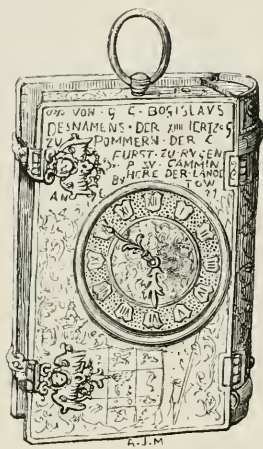 VON · G G · BOGISLAVS
DESNAMENS · DER XIIII HERTZOG
ZU POMMERN · DER C
FURST · ZU · RVGEN
P · Z · CAMMIN
HERE DER · LANDE
TOW
AN
H.J.M